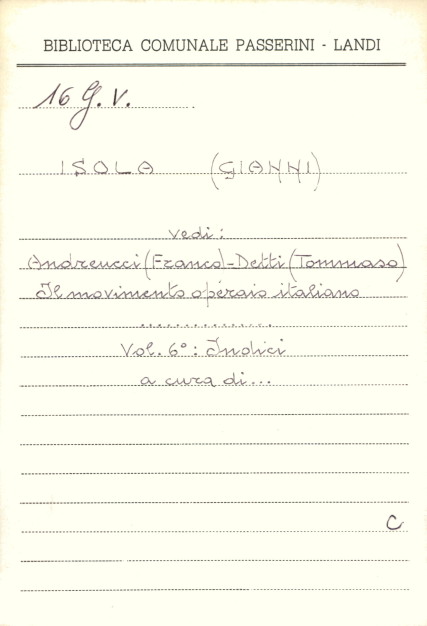 BIBLIOTECA COMUNALE PASSERINI - LANDI
16 G. V.
ISOLA (GIANNI)
vedi:
Andreucci (Franco) - Detti (Tommaso)
Il movimento operaio italiano
...............
Vol. 6º: Indici
a cura di...
C